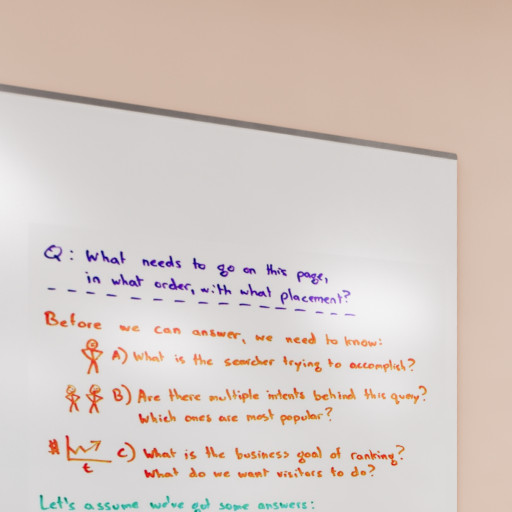 Q: What needs to go on this page,
in what order, with what placement?
Before we can answer, we need to know:
A) What is the searcher trying to accomplish?
B) Are there multiple intents behind this query?
Which ones are most popular?
$ t
C) What is the business goal of ranking?
What do we want visitors to do?
Let's assume we've got some answers: